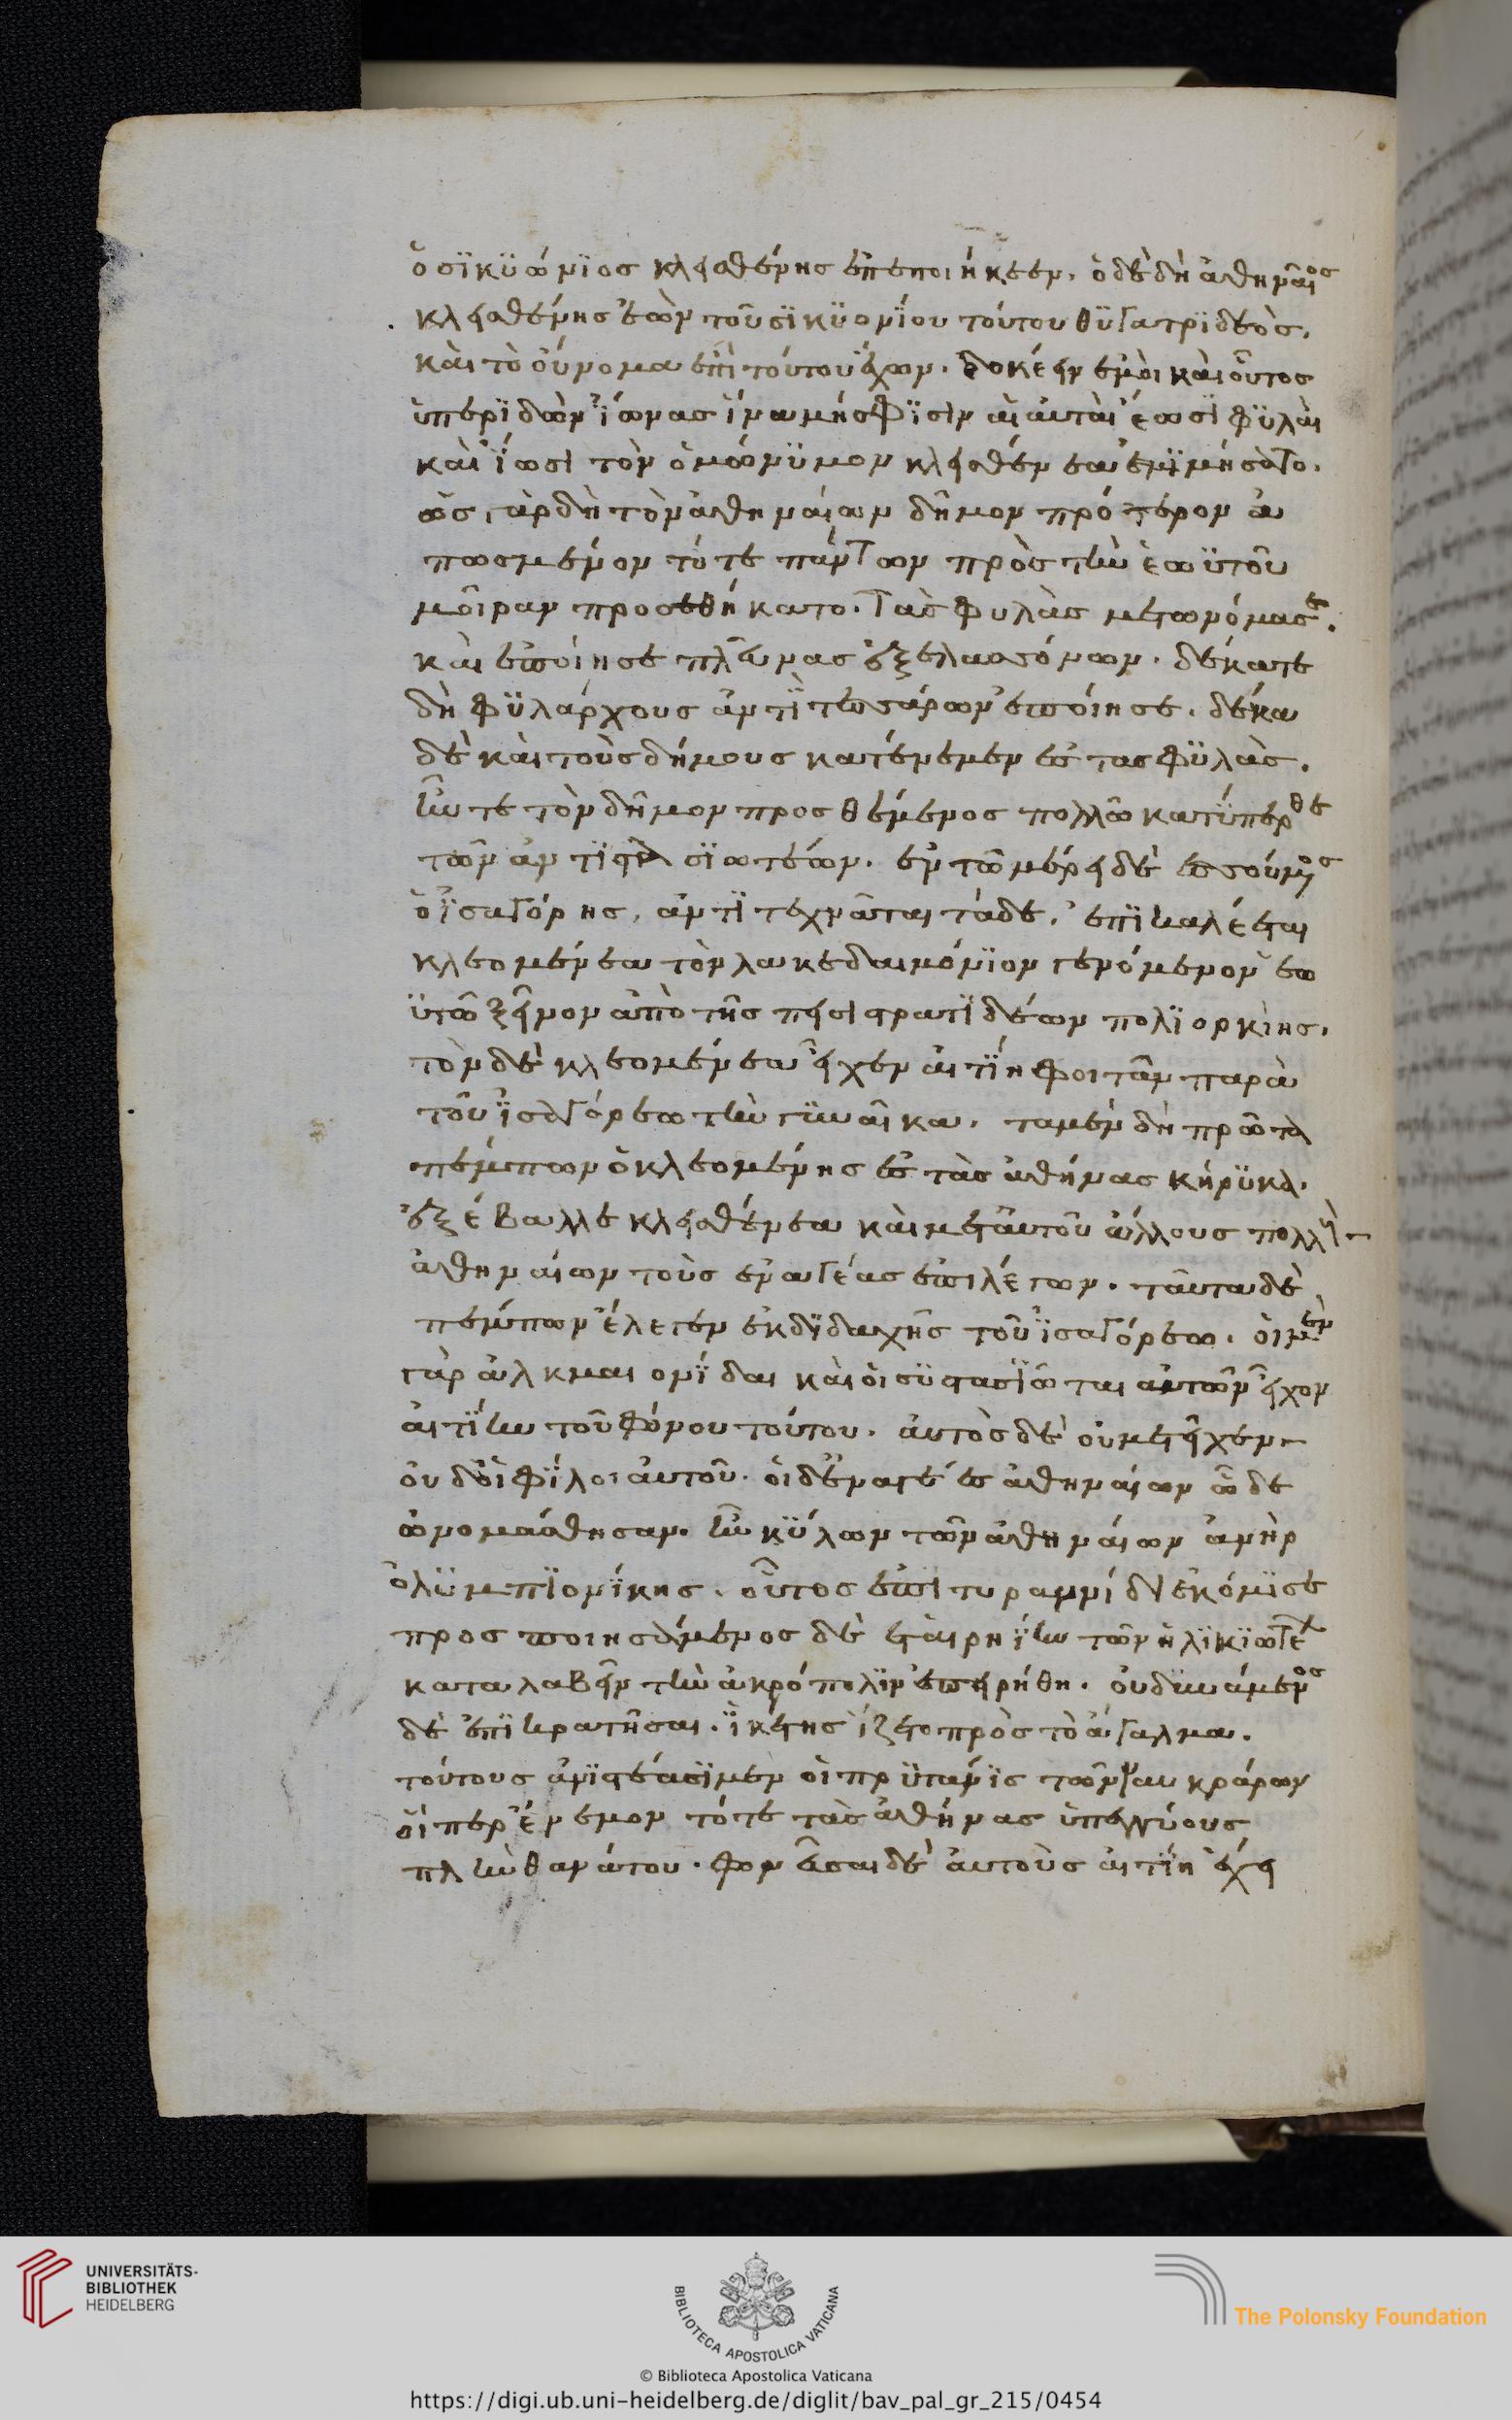 ὁ σϊκϋώνϊος κλεισθένης ἐπεποιήκεεν. ὁ δὲ δὴ ἀθηναῖος
κλεισθένης ἐὼν τοῦ σϊκϋονΐου τούτου θϋγατρϊδεὸς.
καὶ τὸ οὔνομα ἐπὶ τούτου ἔχων. δοκέειν ἐμοὶ καὶ οὗτος
ὑπερϊδὼν ἴωνας ἵνα μή σφϊσιν αἱ αυταὶ ἔωσϊ φϋλαὶ
καὶ ἴωσι τὸν ὁμώνϋμον κλεισθένεα ἐμϊμήσατο.
ὡς γὰρ δὴ τὸν ἀθηναίων δῆμον πρότερον ἀ
πωσμένον τότε πάντων πρὸς τὴν ἑωϋτοῦ
μοῖραν προσεθήκατο. τὰς φυλὰς μετωνόμασε.
καὶ ἐποίησε πλεῦνας ἐξ ἐλασσόνων. δέκα τε
δὴ φϋλάρχους ἀντὶ τεσσάρων ἐποίησε. δέκα
δὲ καὶ τοὺς δήμους κατένεμεν ἐς τας φϋλὰς.
ἦν τε τὸν δῆμον προσθέμενος πολλῶ κατϋπερθε
τῶν ἀντϊστασϊωτέων. ἐν τῶ μέρει δὲ ἑσσούμενος
ὁ ἰσαγόρης, ἀντϊτεχνᾶται τάδε. ἐπϊκαλέεται
κλεομένεα τὸν λακεδαιμόνϊον γενόμενον ἑω
ϋτῶ ξεῖνον ἀπὸ τῆς πεισιστρατϊδέων πολϊορκίης.
τὸν δὲ κλεομένεα εἶχεν αἰτΐη φοιτᾶν παρὰ
τοῦ ἰσαγόρεω τὴν γϋναῖκα. τα μὲν δὴ πρῶτα
πέμπων ὁ κλεομένης ἐς τὰς ἀθήνας κήρϋκα.
ἐξέβαλλε κλεισθένεα καὶ μετ αὐτοῦ ἄλλους πολλοὺς
ἀθηναίων τοὺς ἐναγέας ἐπιλέγων. ταῦτα δὲ
πέμπων ἔλεγεν ἐκ δϊδαχῆς τοῦ ἰσαγόρεω. οἱ μὲν
γὰρ ἀλκμαιονΐδαι καὶ οἱ σϋστασϊῶται αὐτῶν εἶχον
αἰτΐην τοῦ φόνου τούτου. αὐτὸς δὲ οὐ μετεῖχεν
ουδ οἱ φΐλοι αὐτοῦ. οἱ δ ἐναγέες ἀθηναίων ὧδε
ὠνομάσθησαν. ἦν κϋλων τῶν ἀθηναίων ἀνὴρ
ὀλϋμπϊονΐκης. οὗτος ἐπὶ τυραννίδι ἐκόμϊσε
προσποιησάμενος δὲ ἑταιρηΐην τῶν ἡλϊκϊωτέων
καταλαβεῖν τὴν ἀκρόπολϊν ἐπειρήθη. οὐ δϋνάμενος
δὲ ἐπϊκρατῆσαι. ἱκέτης ἵζετο πρὸς τὸ ἄγαλμα.
τούτους ἀνϊστέασϊ μὲν οἱ πρϋτάνϊς τῶν ναυκράρων
οἵπερ ἔνεμον τότε τὰς ἀθήνας ὑπεγγύους
πλὴν θανάτου. φονεῦσαι δὲ αὐτοὺς αἰτΐη ἔχει
UNIVERSITÄTS-
BIBLIOTHEK
HEIDELBERG
BIBLIOTECA APOSTOLICA VATICANA
The Polonsky Foundation
© Biblioteca Apostolica Vaticana
https://digi.ub.uni-heidelberg.de/diglit/bav_pal_gr_215/0454